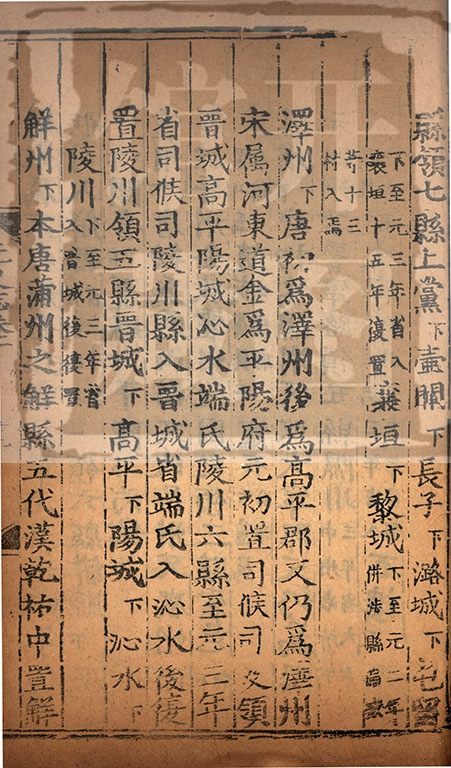 縣領七縣上黨下壺關下長子下潞城下屯留
下至元三年省入襄垣十五年復置襄垣下黎城下至元二年併涉縣
等十三村入焉
澤州下唐初爲澤州後爲高平郡又仍爲澤州
宋属河東道金爲平陽府元初置司候司及領
晉城高平陽城沁水端氏陵川六縣至元三年
省司候司陵川縣入晉城省端氏入沁水後復
置陵川領五縣晉城下高平下陽城下沁水下
陵川下至元三年省入晉城後復置
解州下本唐蒲州之解縣五代漢乾祐中置解